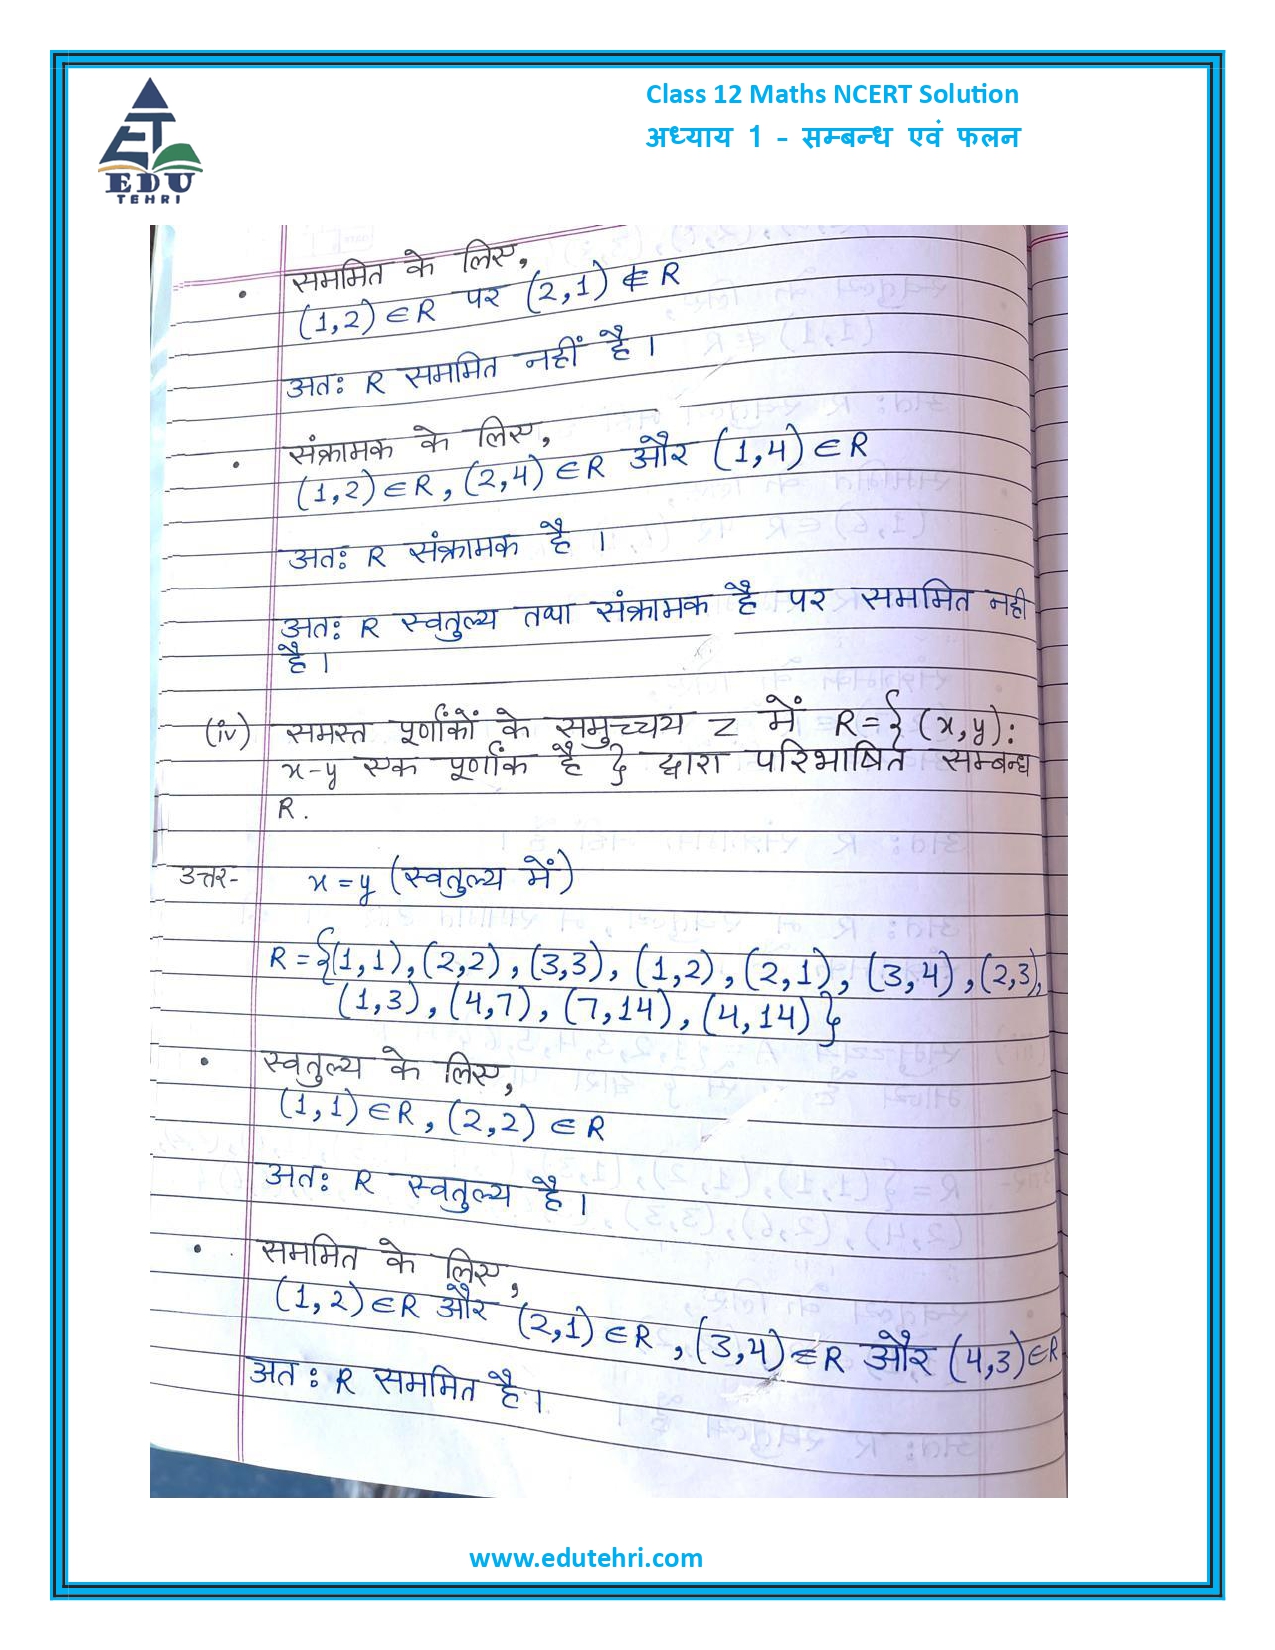 Class 12 Maths NCERT Solution
अध्याय 1 - सम्बन्ध एवं फलन
EDU
TEHRI
• सममित के लिए,
(1,2) ∈ R पर (2,1) ∉ R
अतः R सममित नहीं है।
• संक्रामक के लिए,
(1,2) ∈ R, (2,4) ∈ R और (1,4) ∈ R
अतः R संक्रामक है।
अतः R स्वतुल्य तथा संक्रामक है पर सममित नही
है।
(iv) समस्त पूर्णांकों के समुच्चय Z में R = { (x,y):
x-y एक पूर्णांक है } द्वारा परिभाषित सम्बन्ध
R.
उत्तर- x = y (स्वतुल्य में)
R = {(1,1), (2,2), (3,3), (1,2), (2,1), (3,4), (2,3),
(1,3), (4,7), (7,14), (4,14)}
• स्वतुल्य के लिए,
(1,1) ∈ R, (2,2) ∈ R
अतः R स्वतुल्य है।
• सममित के लिए,
(1,2) ∈ R और (2,1) ∈ R, (3,4) ∈ R और (4,3) ∈ R
अतः R सममित है।
www.edutehri.com